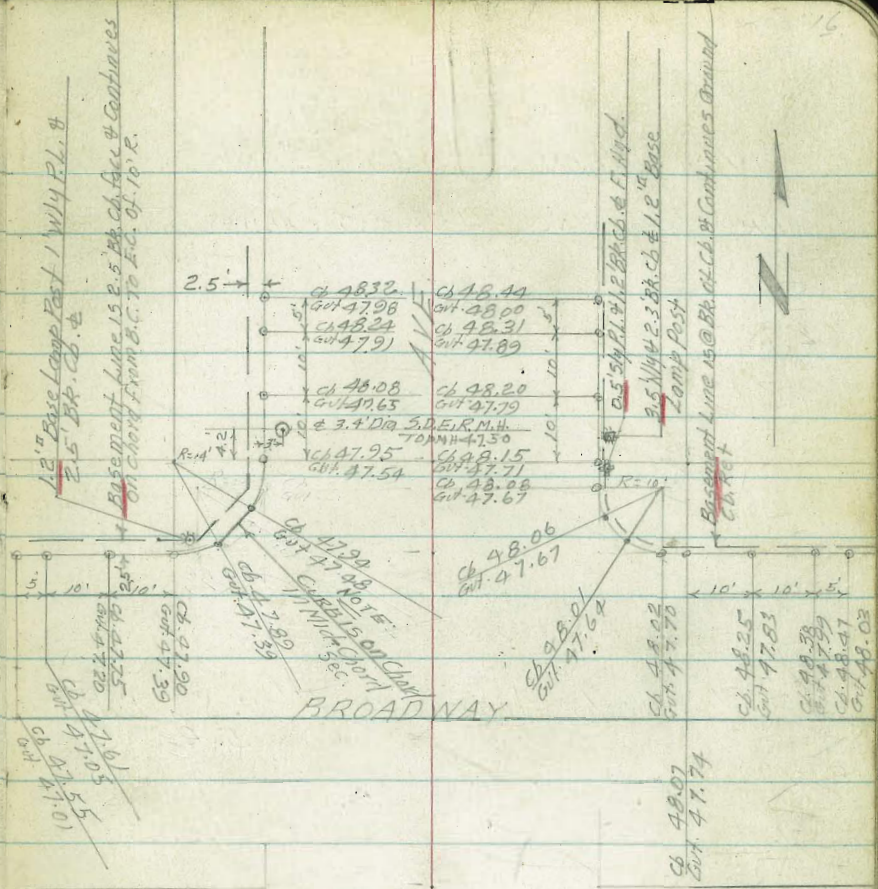 16
1.2'□ Base Lamp Post 1' W'ly P.L. &
2.5' Bk. Cb. ⅊
Basement Line is 2.5' Bk. Cb. face & Continues
on Chord from B.C. to E.C. of 10' R.
2.5'
Cb 48.32
Gut 47.98
Cb 48.24
Gut 47.91
Cb 48.08
Gut 47.65
⅊ 3.4' Dia S.D.E.R.M.H.
TOP MH 47.50
Cb 47.95
Gut. 47.54
5'
10'
10'
4.2
R=14'
AVE
Cb 48.44
Gut. 48.00
Cb 48.31
Gut 47.89
Cb 48.20
Gut 47.79
Cb 48.15
Gut. 47.71
Cb 48.08
Gut. 47.67
5'
10'
10'
R=10'
0.5' S'ly P.L. & 1.2' Bk. Cb. ⅊ F. Hyd.
3.5' W'ly & 2.3' Bk. Cb ⅊ 1.2'□ Base
Lamp Post
Basement Line is @ Bk. of Cb. & Continues around
Cb. Ret
N
5.
10'
2.5'
10'
Cb 47.61
Gut 47.03
Cb 47.55
Gut 47.01
Cb 47.75
Gut 47.20
Cb 47.90
Gut 47.39
Cb 47.89
Gut. 47.39
Cb 47.94
Gut 47.48
NOTE:
Curb is on Chord
in Mid. Chord
Sec.
Cb 48.06
Gut. 47.67
Cb 48.01
Gut. 47.64
Cb 48.02
Gut. 47.70
Cb 48.07
Gut. 47.74
10'
10'
5'
Cb 48.25
Gut 47.83
Cb 48.38
Gut 47.99
Cb 48.47
Gut 48.03
BROADWAY